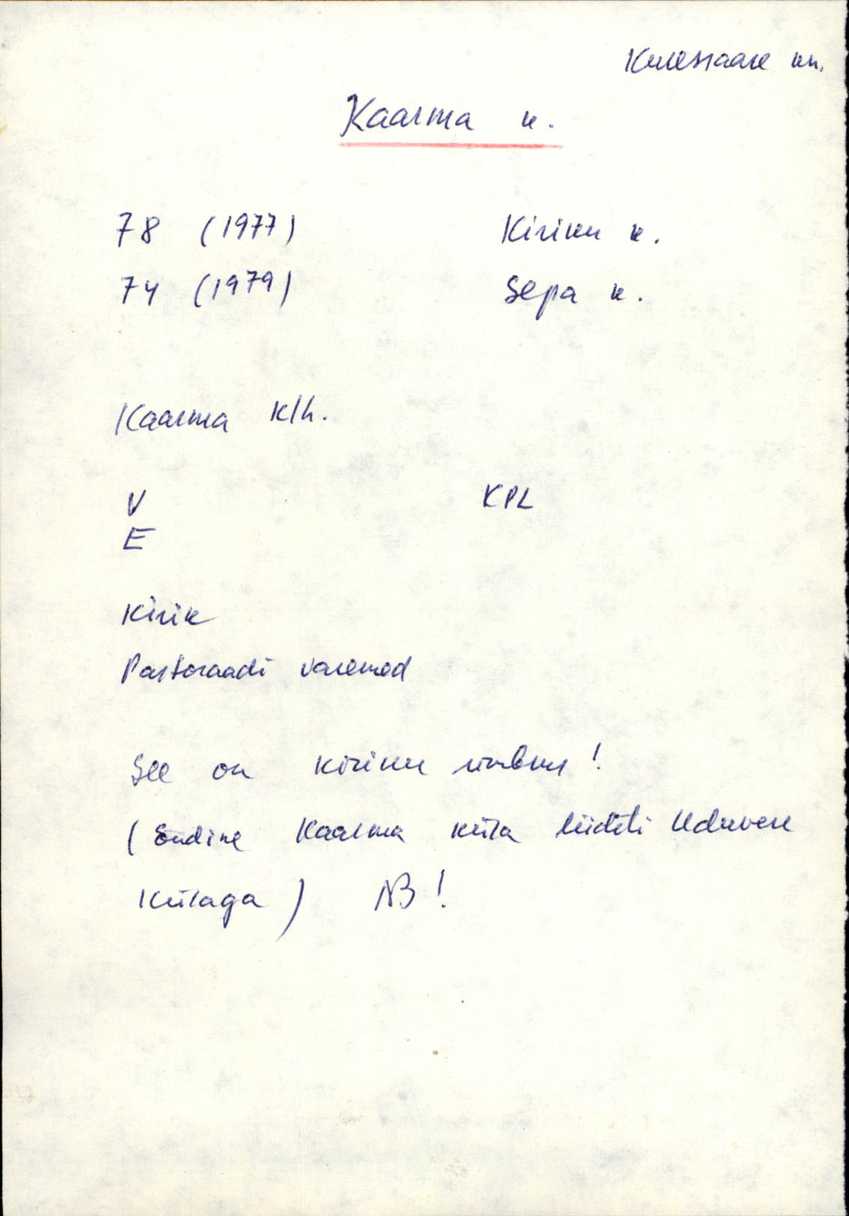 Kuressaare kn.
Kaarma k.
78 (1977) Kiriku k.
74 (1979) Sepa k.
Kaarma klh.
V KPL
E
Kirik
Pastoraadi varemed
See on kiriku ümbrus!
(Endine Kaarma küla liideti Uduvere
külaga) NB!